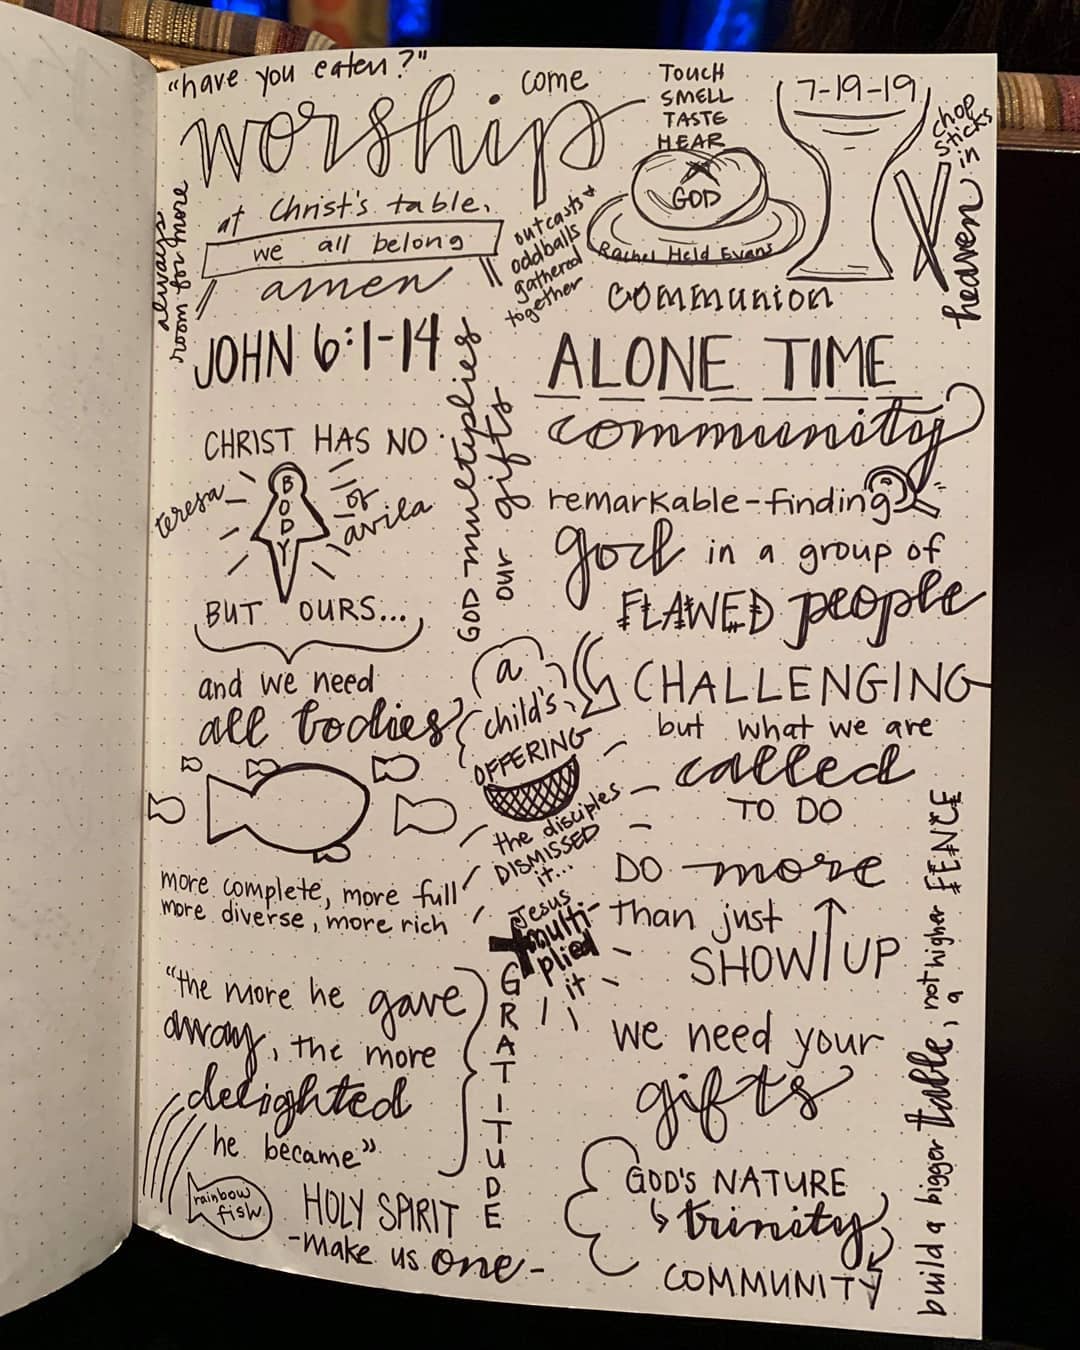 "have you eaten?"
come
worship
at Christ's table,
we all belong
amen
always
room for more
outcasts +
oddballs
gathered
together
TOUCH
SMELL
TASTE
HEAR
GOD
Rachel Held Evans
communion
7-19-19
chop
sticks
in
heaven
JOHN 6:1-14
GOD multiplies
our gifts
CHRIST HAS NO
teresa
of
avila
BODY
BUT YOURS...
and we need
all bodies
more complete, more full
more diverse, more rich
a
child's
OFFERING
the disciples
DISMISSED
it...
Jesus
multi-
plied
it
"the more he gave
away, the more
delighted
he became"
GRATITUDE
rainbow
fish
HOLY SPIRIT
-make us one-
ALONE TIME
community
remarkable-finding
god in a group of
FLAWED people
CHALLENGING
but what we are
called
TO DO
DO more
than just
SHOW UP
we need your
gifts
GOD'S NATURE
trinity
COMMUNITY
build a bigger table, not higher FENCE
a